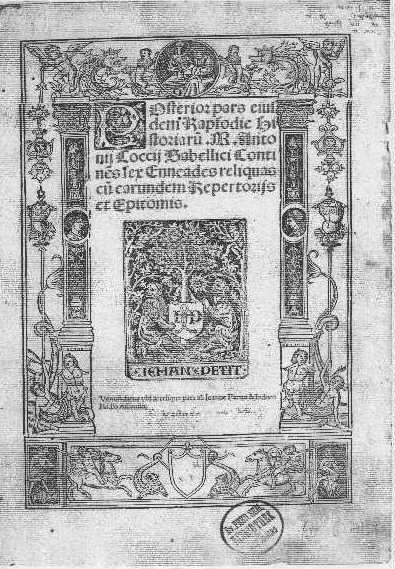 POsterior pars eius
dem Rapsodie Hi
storiarū .M. Anto
nij Coccij Sabellici Conti
nēs sex Enneades reliquas
cū earundem Repertorijs
et Epitomis.
IEHAN PETIT
Venundatur vbi & reliqua pars ab Ioanne Paruo & Iodoco
Badio Ascensio